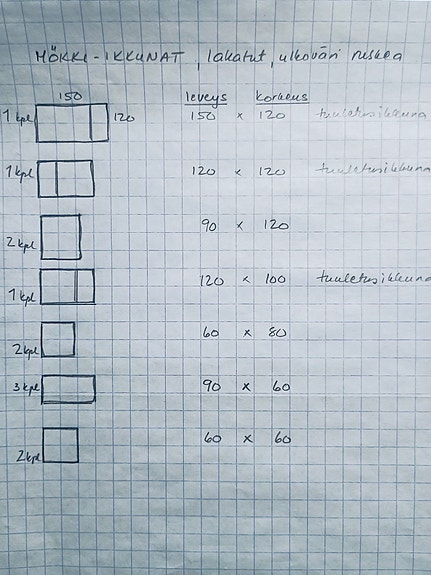 MÖKKI-IKKUNAT, lakatut, ulkoväri ruskea
150 leveys korkeus
1 kpl 120 150 x 120 tuuletusikkuna
1 kpl 120 x 120 tuuletusikkuna
2 kpl 90 x 120
1 kpl 120 x 100 tuuletusikkuna
2 kpl 60 x 80
3 kpl 90 x 60
2 kpl 60 x 60